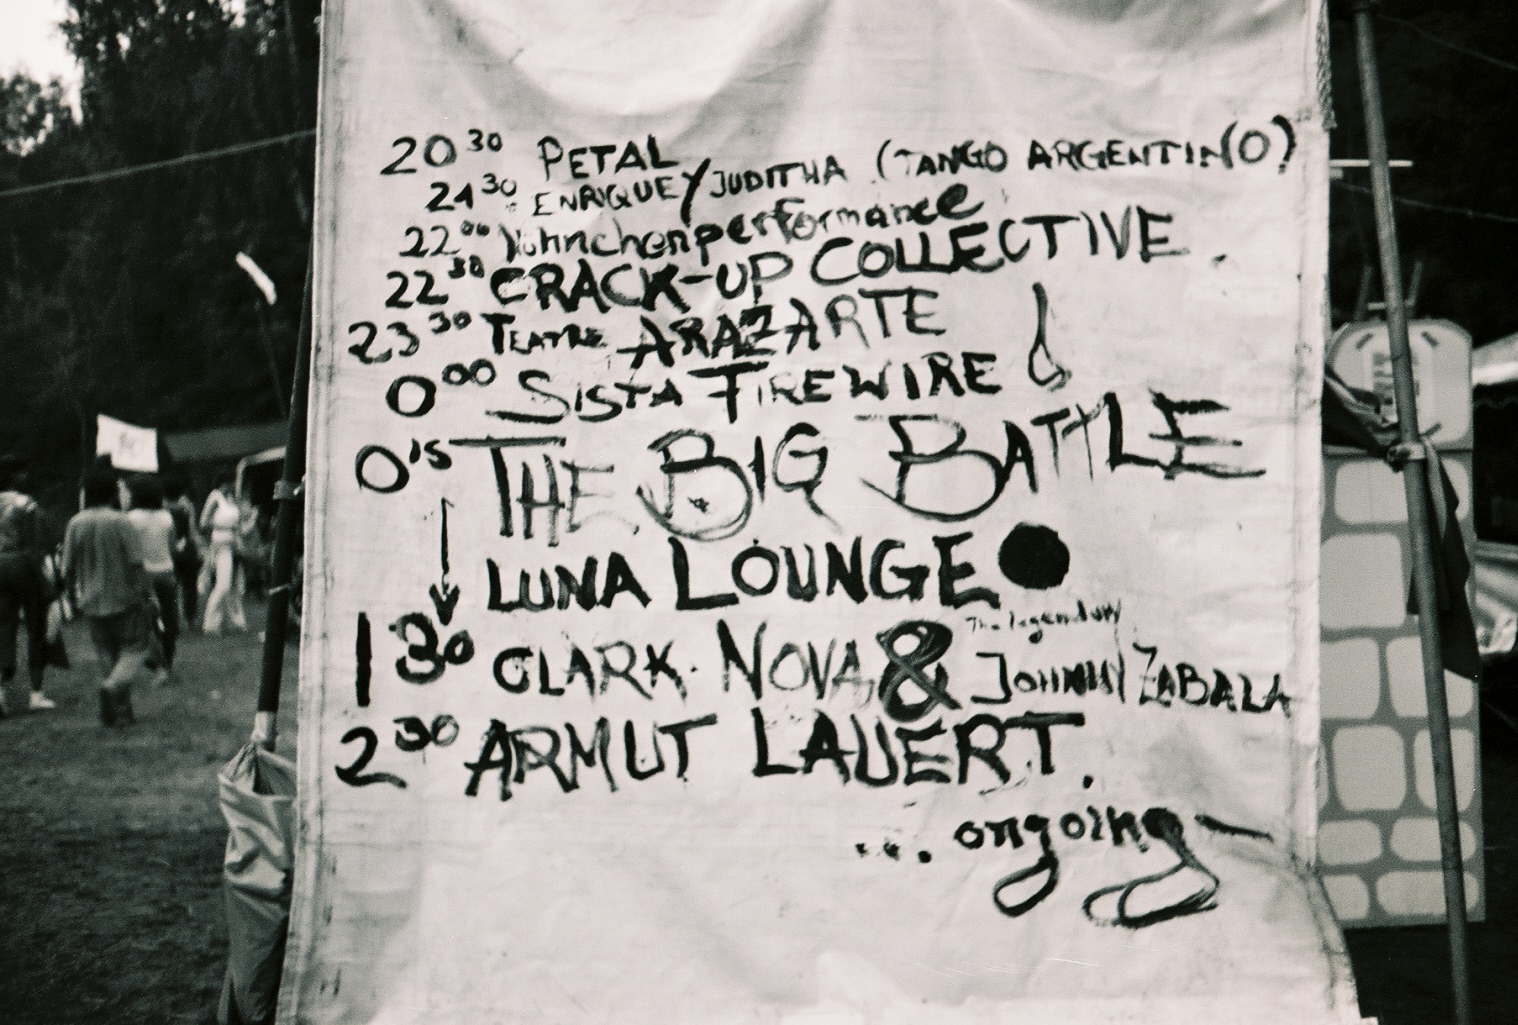 20 30 PETAL
21 30 ENRIQUE Y JUDITHA (TANGO ARGENTIN(O)
22 00 performance
22 30 CRACK-UP COLLECTIVE.
23 30 TEATRE ARAZARTE
0 00 SISTA FIREWIRE
0 15 THE BIG BATTLE
LUNA LOUNGE
1 30 CLARK NOVA & The legendary JOHNNY ZABALA
2 30 ARMUT LAUERT.
... ongoing